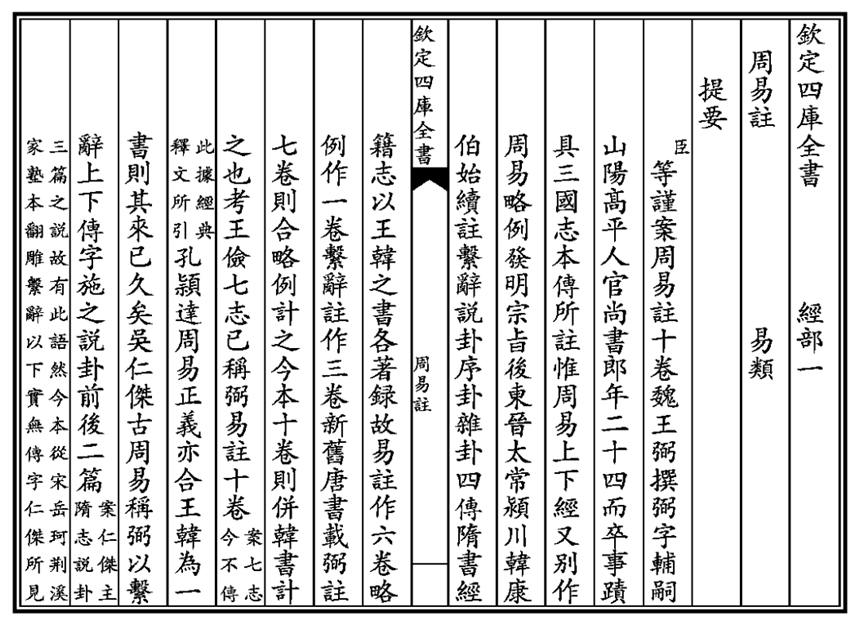 欽定四庫全書　經部一
周易註　易類
提要
臣等謹案周易註十卷魏王弼撰弼字輔嗣
山陽髙平人官尚書郎年二十四而卒事蹟
具三國志本傳所註惟周易上下經又别作
周易略例發明宗㫖後東晉太常潁川韓康
伯始續註繫辭說卦序卦雜卦四傳隋書經
欽定四庫全書　周易註
籍志以王韓之書各著録故易註作六卷略
例作一卷繫辭註作三卷新舊唐書載弼註
七卷則合略例計之今本十卷則併韓書計
之也考王儉七志已稱弼易註十卷案七志今不傳
此據經典釋文所引孔穎達周易正義亦合王韓為一
書則其來已久矣吳仁傑古周易稱弼以繫
辭上下傳字施之說卦前後二篇案仁傑主隋志說卦
三篇之説故有此語然今本從宋岳珂荆溪
家塾本翻雕繫辭以下實無傳字仁傑所見